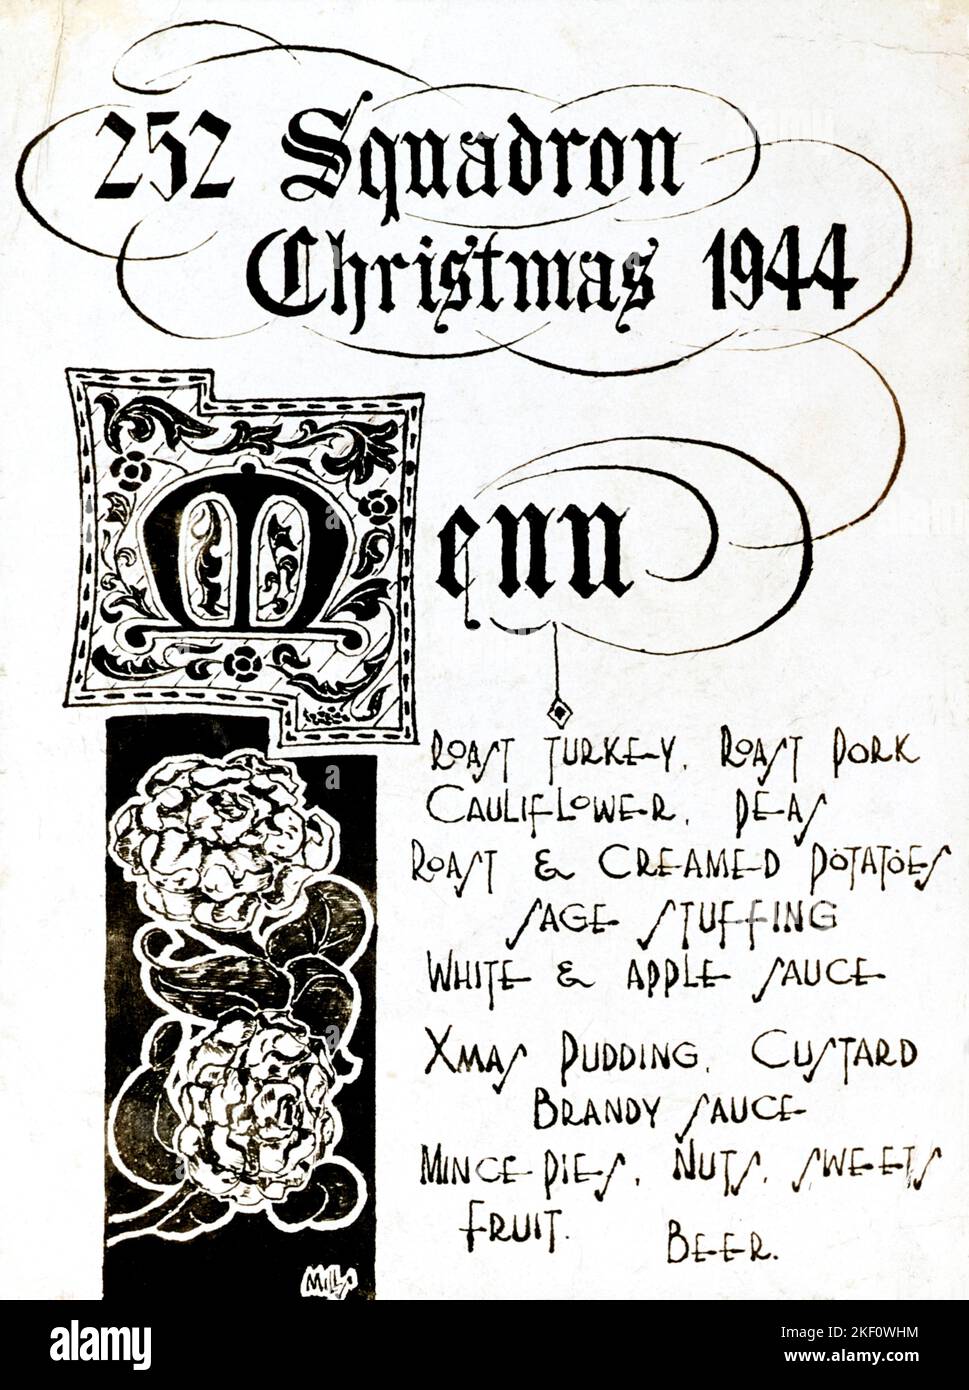 252 Squadron
Christmas 1944
Menu
Roast Turkey. Roast Pork
Cauliflower. Peas
Roast & Creamed Pötatöes
Sage Stuffing
White & Apple Sauce
Xmas Pudding. Custard
Brandy Sauce
Mince Pies. Nuts. Sweets
Fruit. Beer.
Mills
alamy
Image ID: 2KF0WHM
www.alamy.com